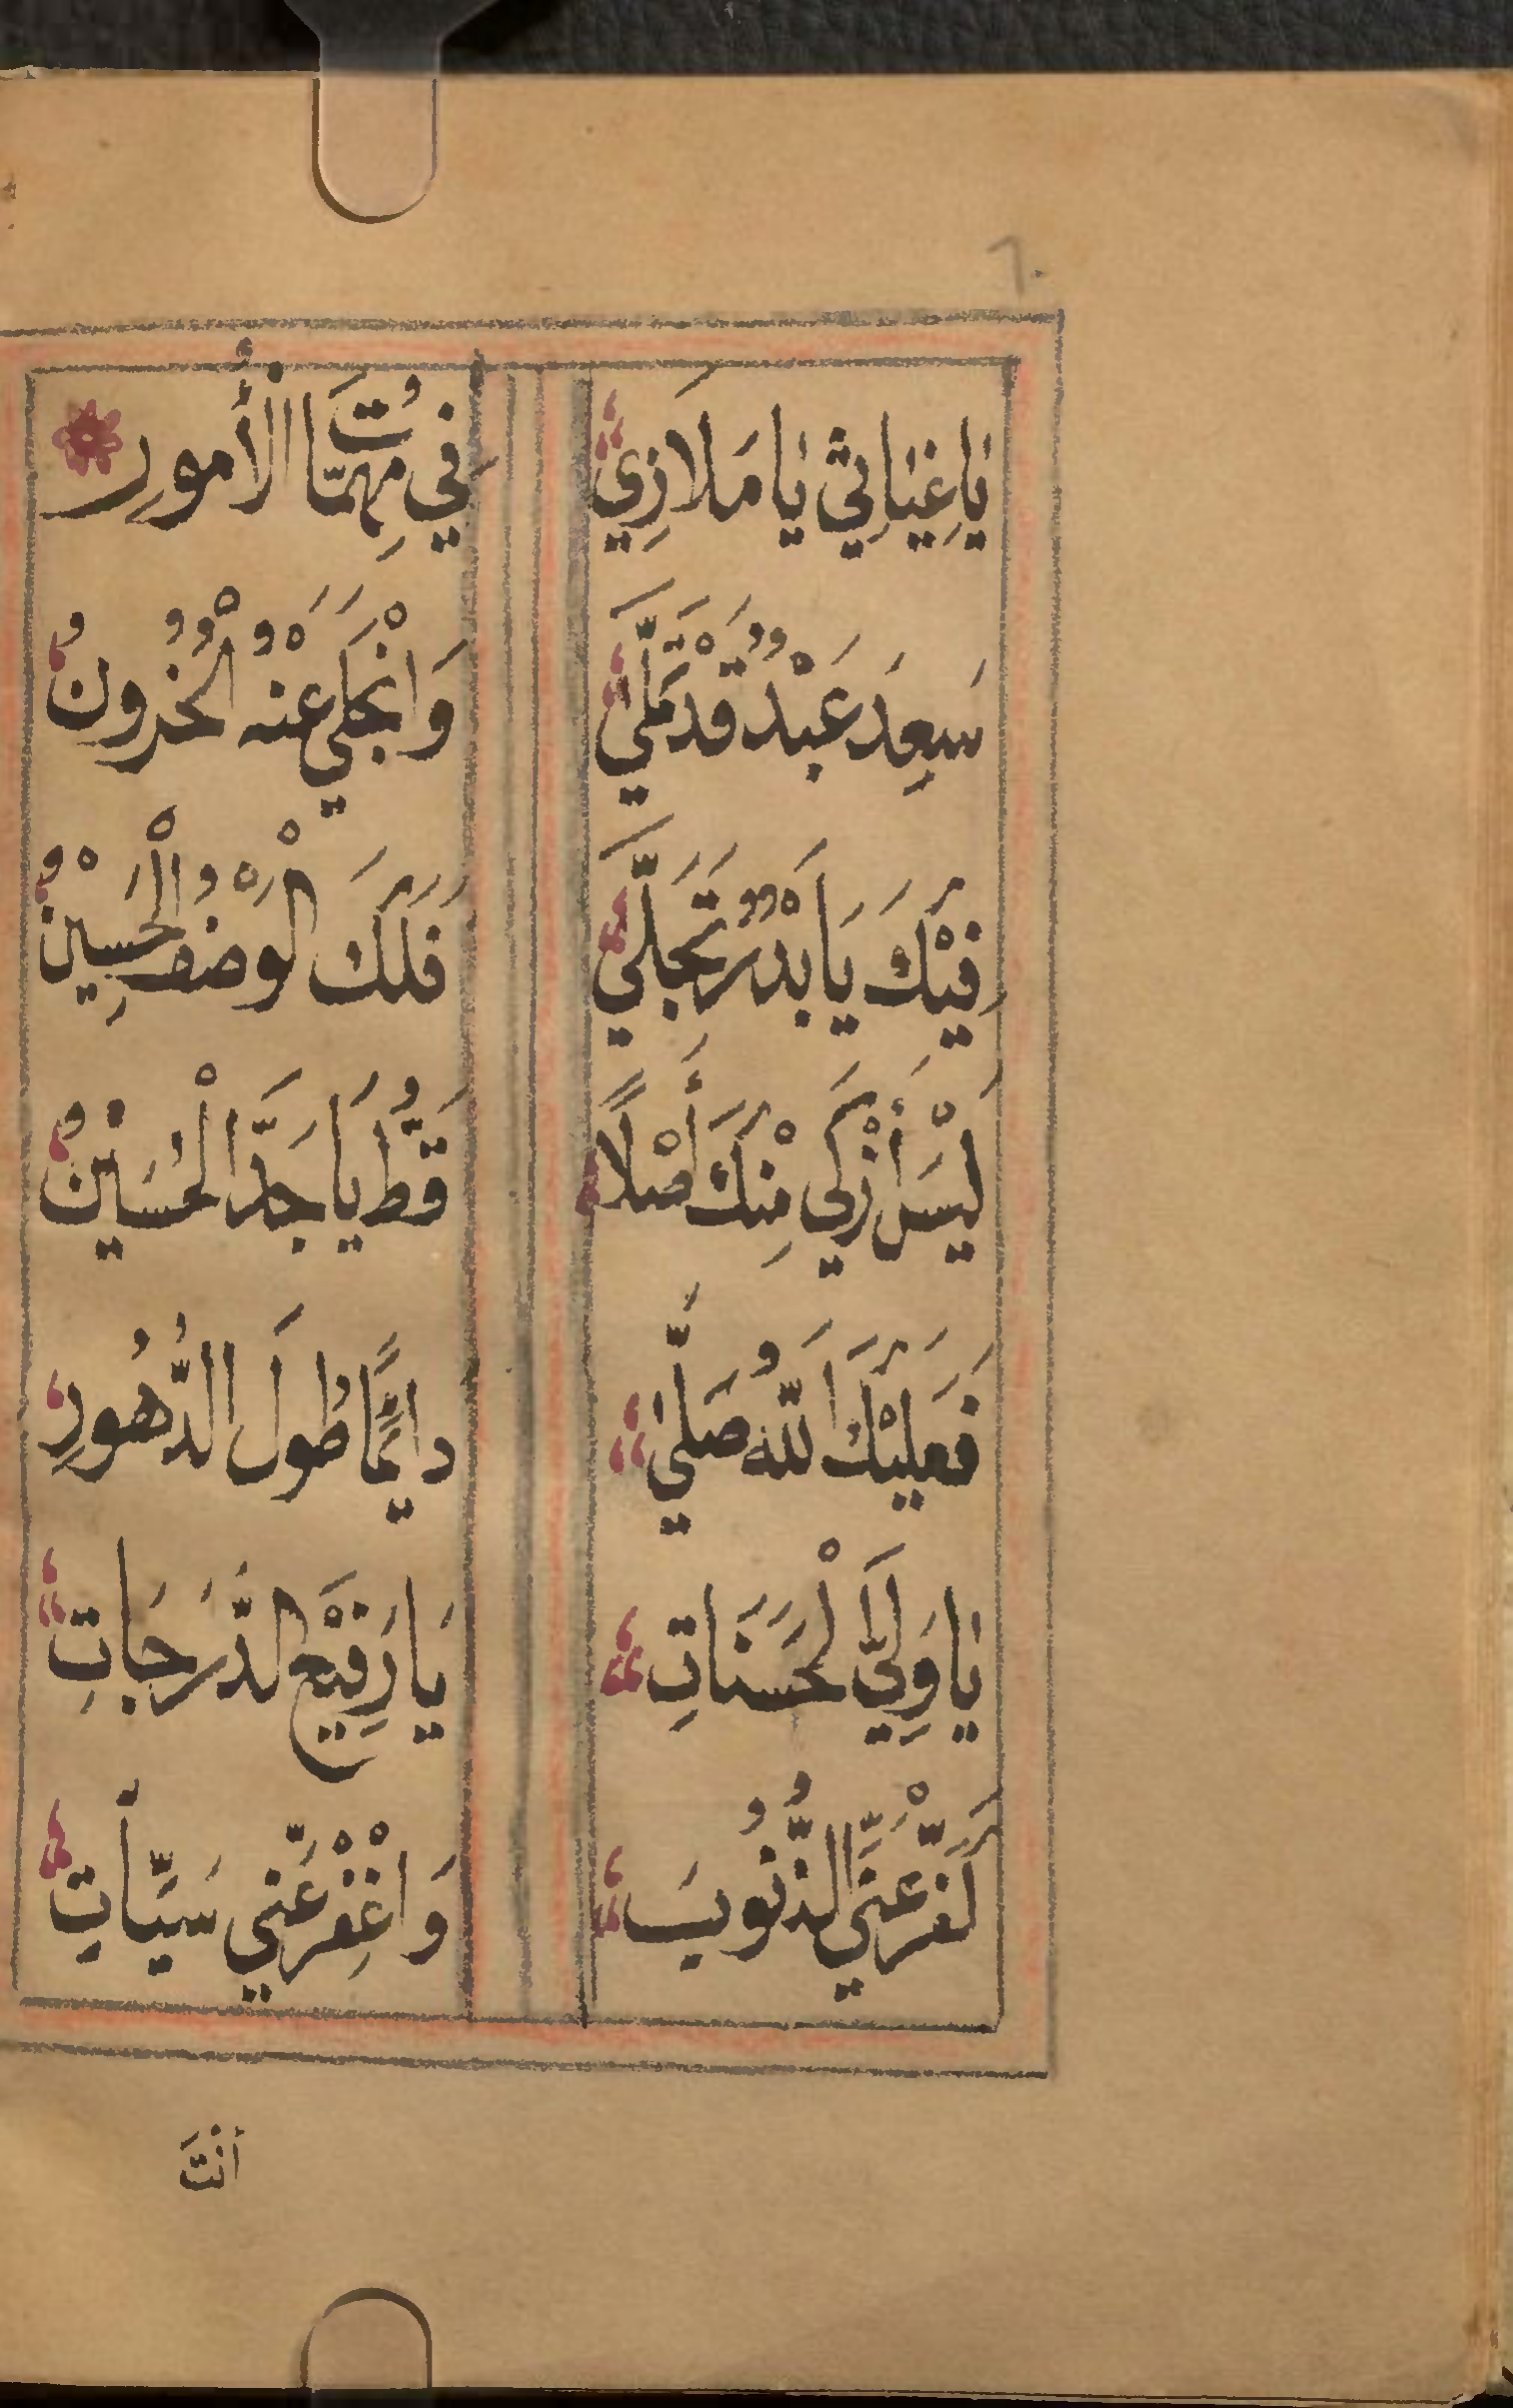 ٦٠
يَا غِيَاثِي يَا مَلَازِي فِي مُهِمَّاتِ الْأُمُورِ
سَعِدَ عَبْدٌ قَدْ تَمَلَّي وَانْجَلَي عَنْهُ الْحُزُونُ
فِيْكَ يَا بَدْرٌ تَجَلَّي فَلَكَ الْوَصْفُ الْحَسِيْنُ
لَيْسَ أَزْكَي مِنْكَ أَصْلًا قَطُّ يَا جَدَّ الْحُسَيْنُ
فَعَلَيْكَ اَللّٰهُ صَلَّي دَايِمًا طُولَ الدُّهُورِ
يَا وَلِيَّ الْحَسَنَاتِ يَا رَفِيْعَ الدَّرَجَاتِ
كَفِّرْ عَنِّيَ الذُّنُوبَ وَاغْفِرْ عَنِّي سَيِّأَتِ
أَنْتَ